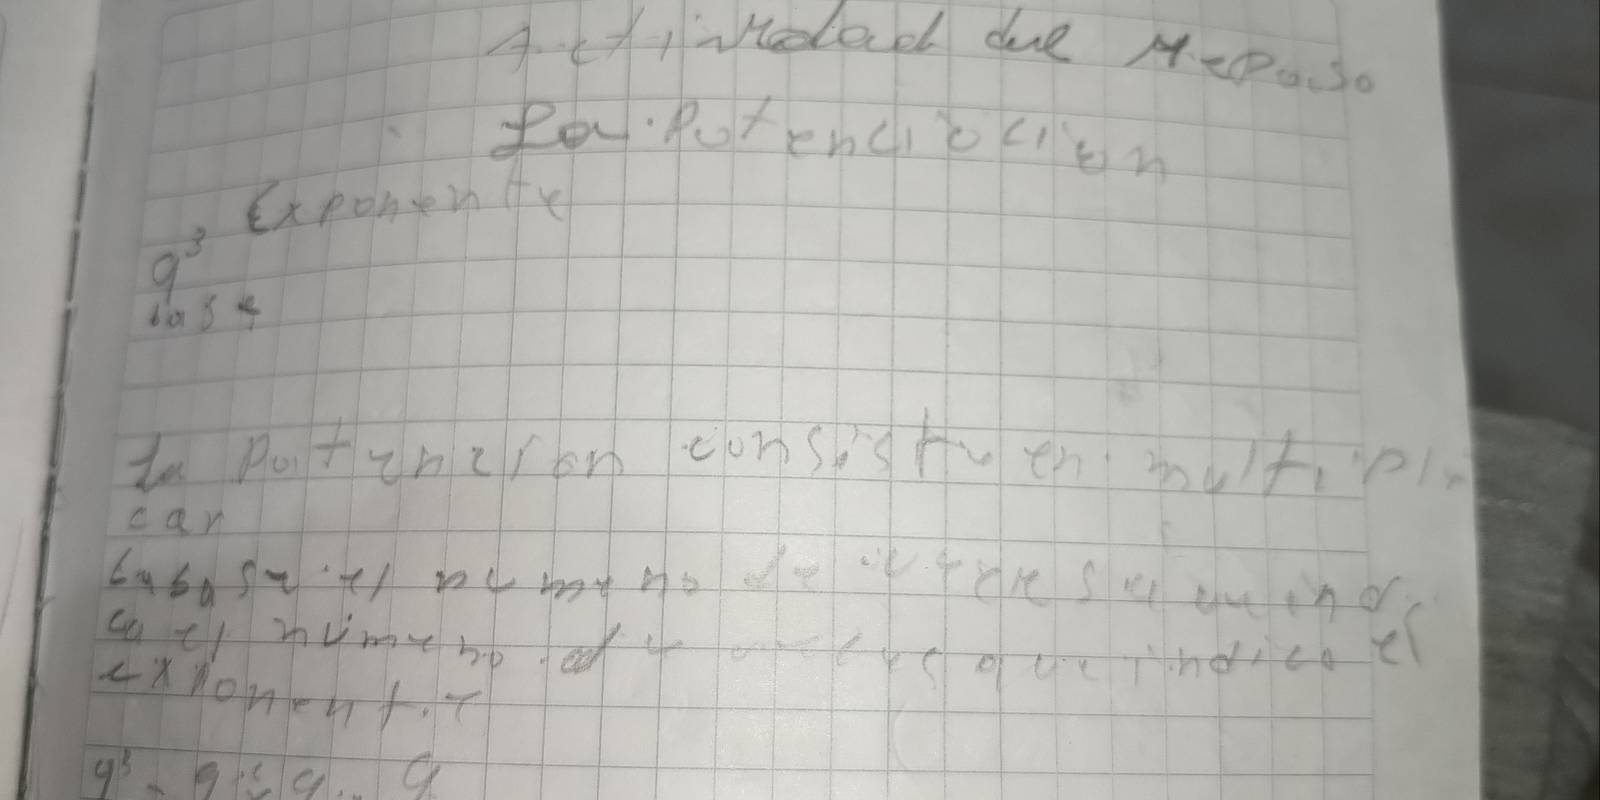 Actividad de repaso
La Potenciacion
Exponente
9³
base
La Potencion consiste en multipli
car
la base el numero de veces que indi
ca el número de veces que indica el
exponente
9³ = 9 x 9 x 9